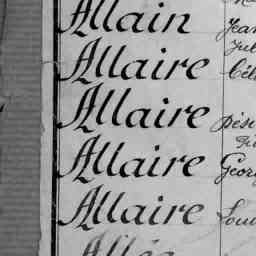 Allain Jean
Allaire Cél
Allaire Dési
Allaire Georg
Allaire Loui